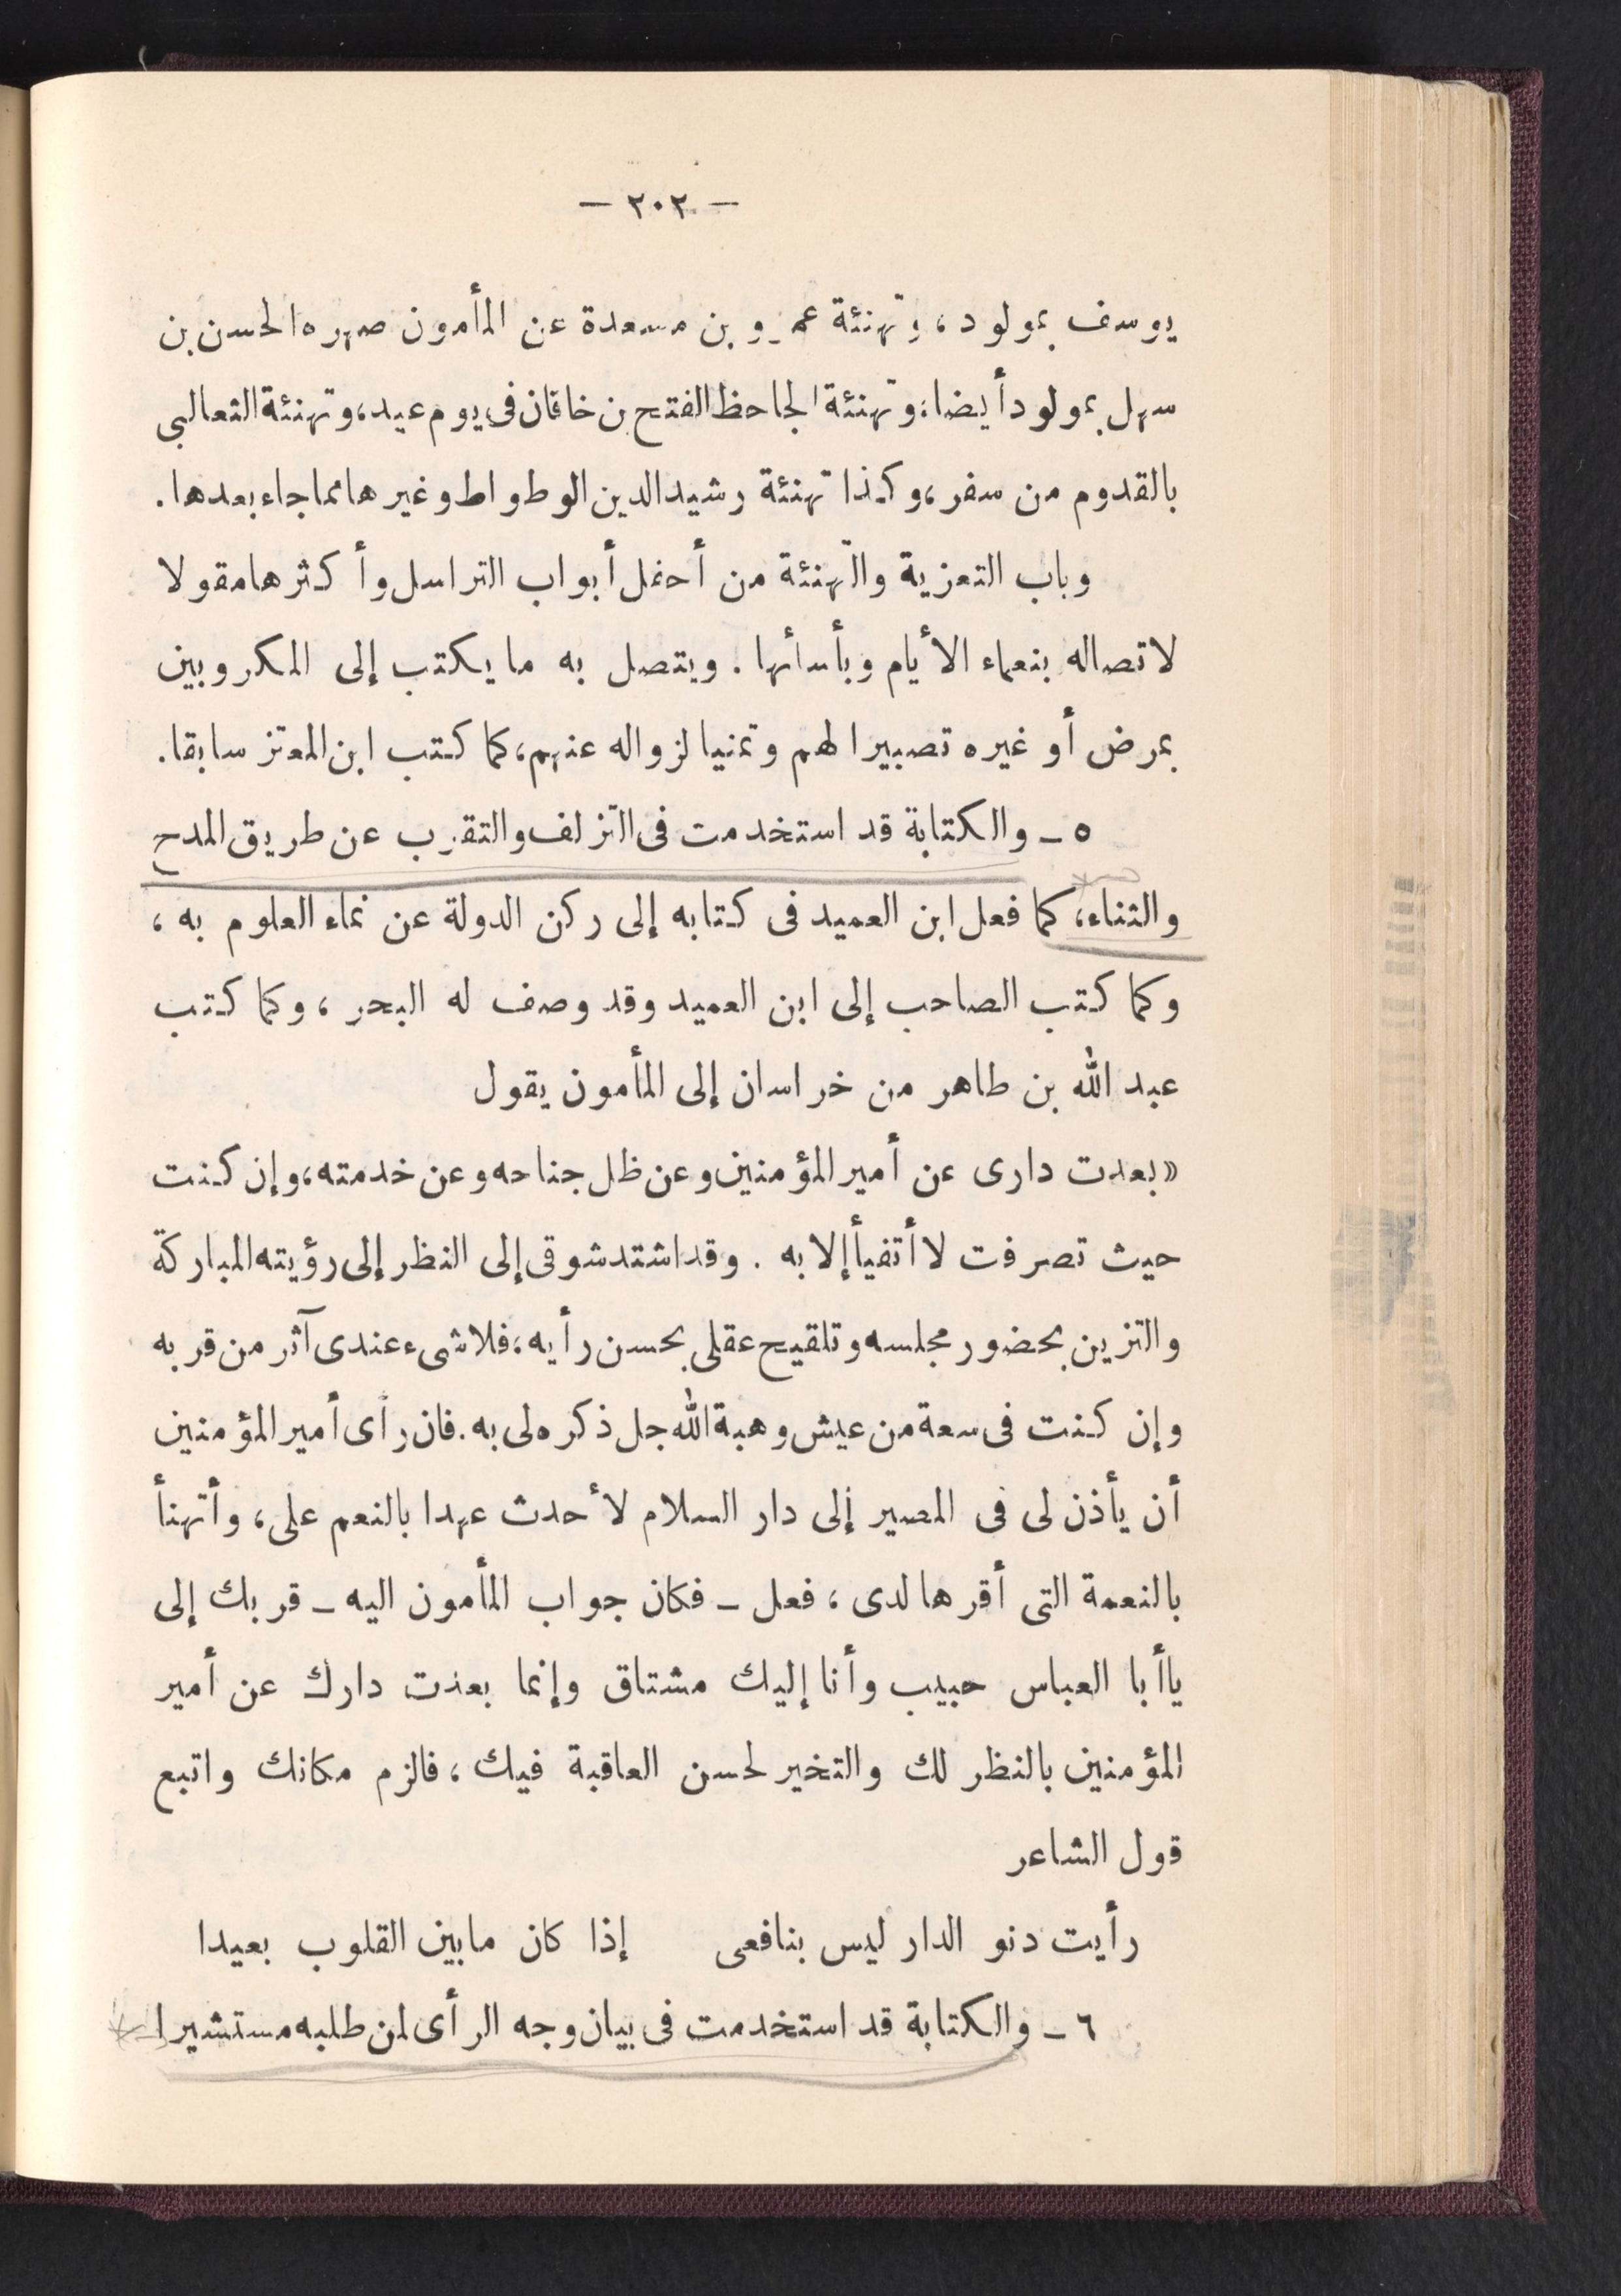 — ٢٠٢ —
يوسف بمولود، وتهنئة عمرو بن مسعدة عن المأمون صهره الحسن بن
سهل بمولود أيضا، وتهنئة الجاحظ الفتح بن خاقان فى يوم عيد، وتهنئة الثعالبى
بالقدوم من سفر، وكذا تهنئة رشيد الدين الوطواط وغيرها مما جاء بعدها.
وباب التعزية والتهنئة من أحفل أبواب التراسل وأكثرها مقولا
لاتصاله بنعماء الأيام وبأسائها. ويتصل به ما يكتب إلى المكروبين
بمرض أو غيره تصبيرا لهم وتمنيا لزواله عنهم، كما كتب ابن المعتز سابقا.
٥ ـ والكتابة قد استخدمت فى التزلف والتقرب عن طريق المدح
والثناء، كما فعل ابن العميد فى كتابه إلى ركن الدولة عن نماء العلوم به ،
وكما كتب الصاحب إلى ابن العميد وقد وصف له البحر ، وكما كتب
عبد الله بن طاهر من خراسان إلى المأمون يقول
«بعدت دارى عن أمير المؤمنين وعن ظل جناحه وعن خدمته، وإن كنت
حيث تصرفت لا أتفيأ إلا به . وقد اشتد شوقى إلى النظر إلى رؤيته المباركة
والتزين بحضور مجلسه وتلقيح عقلى بحسن رأيه، فلا شىء عندى آثر من قربه
وإن كنت فى سعة من عيش وهبة الله جل ذكره لى به. فان رأى أمير المؤمنين
أن يأذن لى فى المصير إلى دار السلام لأحدث عهدا بالنعم على، وأتهنأ
بالنعمة التى أقرها لدى ، فعل ـ فكان جواب المأمون اليه ـ قربك إلى
يا أبا العباس حبيب وأنا إليك مشتاق وإنما بعدت دارك عن أمير
المؤمنين بالنظر لك والتخير لحسن العاقبة فيك ، فالزم مكانك واتبع
قول الشاعر
رأيت دنو الدار ليس بنافعى إذا كان ما بين القلوب بعيدا
٦ ـ والكتابة قد استخدمت فى بيان وجه الرأى لمن طلبه مستشيرا